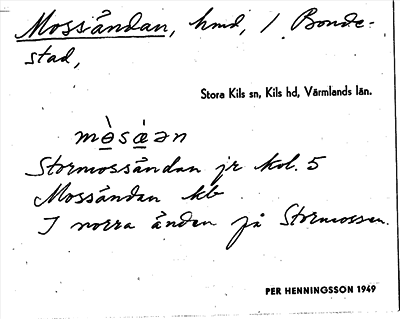 Mossändan, hmd, / Bonde-
stad,
Stora Kils sn, Kils hd, Värmlands län.
mo̲̊̀sǽ̲ən
Stormossändan jr kol. 5
Mossändan kb
I norra ändan på Stormossen.
PER HENNINGSSON 1949